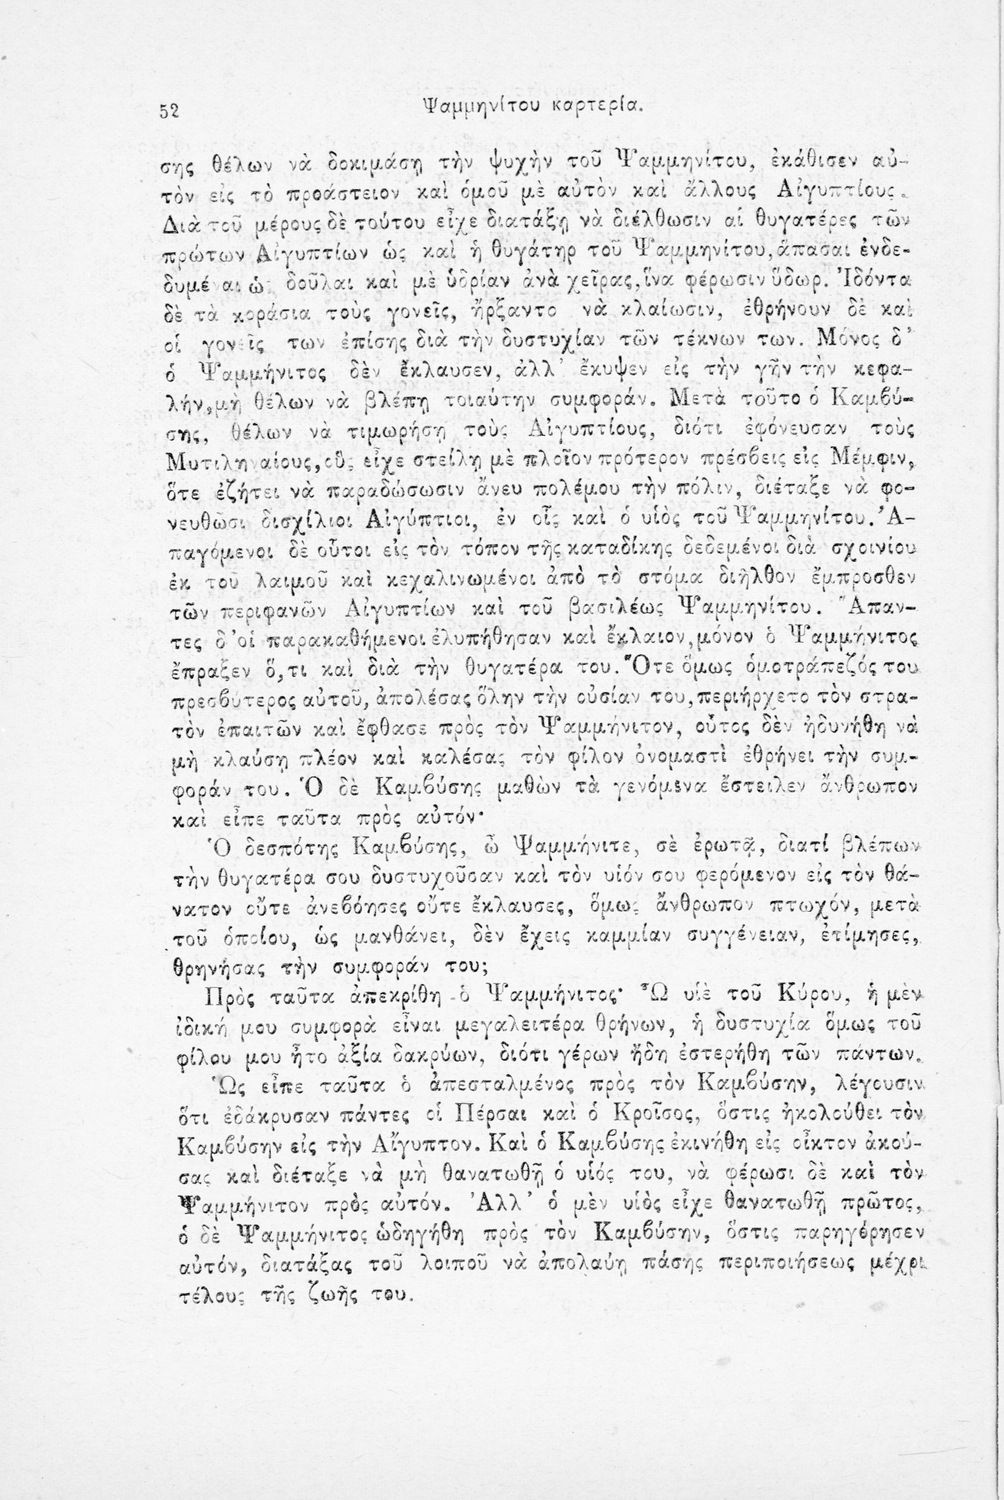 52
Ψαμμηνίτου καρτερία.
σης θέλων νὰ δοκιμάσῃ τὴν ψυχὴν τοῦ Ψαμμηνίτου, ἐκάθισεν αὐ-
τὸν εἰς τὸ προάστειον καὶ ὁμοῦ μὲ αὐτὸν καὶ ἄλλους Αἰγυπτίους.
Διὰ τοῦ μέρους δὲ τούτου εἶχε διατάξῃ νὰ διέλθωσιν αἱ θυγατέρες τῶν
πρώτων Αἰγυπτίων ὡς καὶ ἡ θυγάτηρ τοῦ Ψαμμηνίτου, ἅπασαι ἐνδε-
δυμέναι ὡς δοῦλαι καὶ μὲ ὑδρίαν ἀνὰ χεῖρας, ἵνα φέρωσιν ὕδωρ. Ἰδόντα
δὲ τὰ κοράσια τοὺς γονεῖς, ἤρξαντο νὰ κλαίωσιν, ἐθρήνουν δὲ καὶ
οἱ γονεῖς των ἐπίσης διὰ τὴν δυστυχίαν τῶν τέκνων των. Μόνος δ᾽
ὁ Ψαμμήνιτος δὲν ἔκλαυσεν, ἀλλ᾽ ἔκυψεν εἰς τὴν γῆν τὴν κεφα-
λήν, μὴ θέλων νὰ βλέπῃ τοιαύτην συμφοράν. Μετὰ τοῦτο ὁ Καμβύ-
σης, θέλων νὰ τιμωρήσῃ τοὺς Αἰγυπτίους, διότι ἐφόνευσαν τοὺς
Μυτιληναίους, οὓς εἶχε στείλῃ μὲ πλοῖον πρότερον πρέσβεις εἰς Μέμφιν,
ὅτε ἐζήτει νὰ παραδώσωσιν ἄνευ πολέμου τὴν πόλιν, διέταξε νὰ φο-
νευθῶσι δισχίλιοι Αἰγύπτιοι, ἐν οἷς καὶ ὁ υἱὸς τοῦ Ψαμμηνίτου. Ἀ-
παγόμενοι δὲ οὗτοι εἰς τὸν τόπον τῆς καταδίκης δεδεμένοι διὰ σχοινίου
ἐκ τοῦ λαιμοῦ καὶ κεχαλινωμένοι ἀπὸ τὸ στόμα διῆλθον ἔμπροσθεν
τῶν περιφανῶν Αἰγυπτίων καὶ τοῦ βασιλέως Ψαμμηνίτου. Ἅπαν-
τες δ᾽ οἱ παρακαθήμενοι ἐλυπήθησαν καὶ ἔκλαιον, μόνον ὁ Ψαμμήνιτος
ἔπραξεν ὅ,τι καὶ διὰ τὴν θυγατέρα του. Ὅτε ὅμως ὁμοτράπεζός του
πρεσβύτερος αὐτοῦ, ἀπολέσας ὅλην τὴν οὐσίαν του, περιήρχετο τὸν στρα-
τὸν ἐπαιτῶν καὶ ἔφθασε πρὸς τὸν Ψαμμήνιτον, οὗτος δὲν ἠδυνήθη νὰ
μὴ κλαύσῃ πλέον καὶ καλέσας τὸν φίλον ὀνομαστὶ ἐθρήνει τὴν συμ-
φοράν του. Ὁ δὲ Καμβύσης μαθὼν τὰ γενόμενα ἔστειλεν ἄνθρωπον
καὶ εἶπε ταῦτα πρὸς αὐτόν·
Ὁ δεσπότης Καμβύσης, ὦ Ψαμμήνιτε, σὲ ἐρωτᾷ, διατί βλέπων
τὴν θυγατέρα σου δυστυχοῦσαν καὶ τὸν υἱόν σου φερόμενον εἰς τὸν θά-
νατον οὔτε ἀνεβόησες οὔτε ἔκλαυσες, ὅμως ἄνθρωπον πτωχόν, μετὰ
τοῦ ὁποίου, ὡς μανθάνει, δὲν ἔχεις καμμίαν συγγένειαν, ἐτίμησες,
θρηνήσας τὴν συμφοράν του;
Πρὸς ταῦτα ἀπεκρίθη ὁ Ψαμμήνιτος· Ὦ υἱὲ τοῦ Κύρου, ἡ μὲν
ἰδική μου συμφορὰ εἶναι μεγαλειτέρα θρήνων, ἡ δυστυχία ὅμως τοῦ
φίλου μου ἦτο ἀξία δακρύων, διότι γέρων ἤδη ἐστερήθη τῶν πάντων.
Ὡς εἶπε ταῦτα ὁ ἀπεσταλμένος πρὸς τὸν Καμβύσην, λέγουσιν
ὅτι ἐδάκρυσαν πάντες οἱ Πέρσαι καὶ ὁ Κροῖσος, ὅστις ἠκολούθει τὸν
Καμβύσην εἰς τὴν Αἴγυπτον. Καὶ ὁ Καμβύσης ἐκινήθη εἰς οἶκτον ἀκού-
σας καὶ διέταξε νὰ μὴ θανατωθῇ ὁ υἱός του, νὰ φέρωσι δὲ καὶ τὸν
Ψαμμήνιτον πρὸς αὐτόν. Ἀλλ᾽ ὁ μὲν υἱὸς εἶχε θανατωθῇ πρῶτος,
ὁ δὲ Ψαμμήνιτος ὡδηγήθη πρὸς τὸν Καμβύσην, ὅστις παρηγόρησεν
αὐτόν, διατάξας τοῦ λοιποῦ νὰ ἀπολαύῃ πάσης περιποιήσεως μέχρι
τέλους τῆς ζωῆς του.